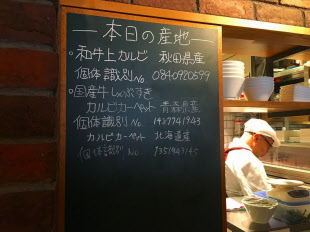 本日の産地
。和牛上カルビ 秋田県産
個体識別No 0840920699
。国産牛しゃぶすき
カルビカーペット 青森県産
個体識別No. 1427741943
カルビカーペット 北海道産
個体識別 No.